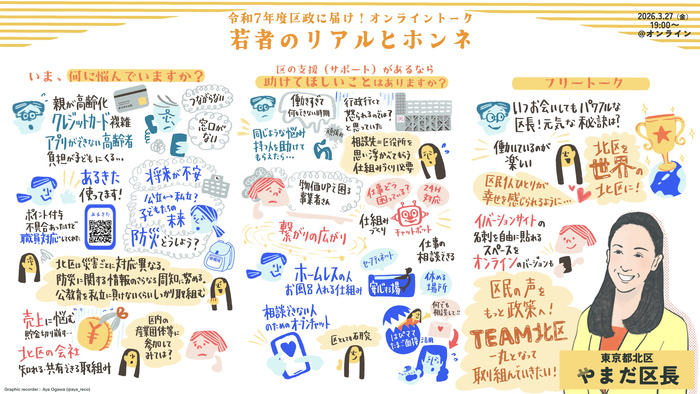 令和7年度区政に届け！オンライントーク
若者のリアルとホンネ
2026.3.27（金）
19:00〜
@オンライン
いま、何に悩んでいますか？
親が高齢化
クレジットカード複雑
アプリができない高齢者
負担が子どもにくる…
つながらない
窓口が
ない
あるきた
使ってます！
ポイント付与
不具合あったけど
職員対応してくれた
あるきた
将来が不安
公立↔私立？
子どもたちの
未来
防災どうしよう？
北区は災害ごとに対応異なる。
防災に関する情報のさらなる周知に努める。
公教育を私立に負けないくらいしっかり取組む
売上に悩む
貯金切り崩す…
北区の会社
知れる・共有できる取組み
区内の
産業団体等に
参加して
みては？
区の支援（サポート）があるなら
助けてほしいことはありますか？
働きすぎて
何もできない時期
同じような悩み
持つ人を助けて
もらえたら…
行政行くと
怒られるのでは？と
思っていた
相談先＝区役所を
思い浮かべてもらう
仕組みづくり必要
物価UPで困る
事業者さん
仕事どう？
困ってる？
24H
対応
チャットボット
繋がりの広がり
仕組み
づくり
仕事の
相談できる
ホームレスの人
お風呂入れる仕組み
セーフティネット
休める
場所
相談できない人
のためのオンラインチャット
区としても研究
何でも
相談を！！
活用
フリートーク
いつお会いしてもパワフルな
区長！元気な秘訣は？
働いているのが
楽しい
区民1人ひとりが
幸せを感じられるように…
北区を
世界の
北区に！
イノベーションサイトの
名刺を自由に貼れる
スペースを
オンラインのバージョンも
区民の声を
もっと政策へ！
TEAM北区
一丸となって
取り組んでいきたい！
東京都北区
やまだ区長
Graphic recorder : Aya Ogawa (@aya_reco)